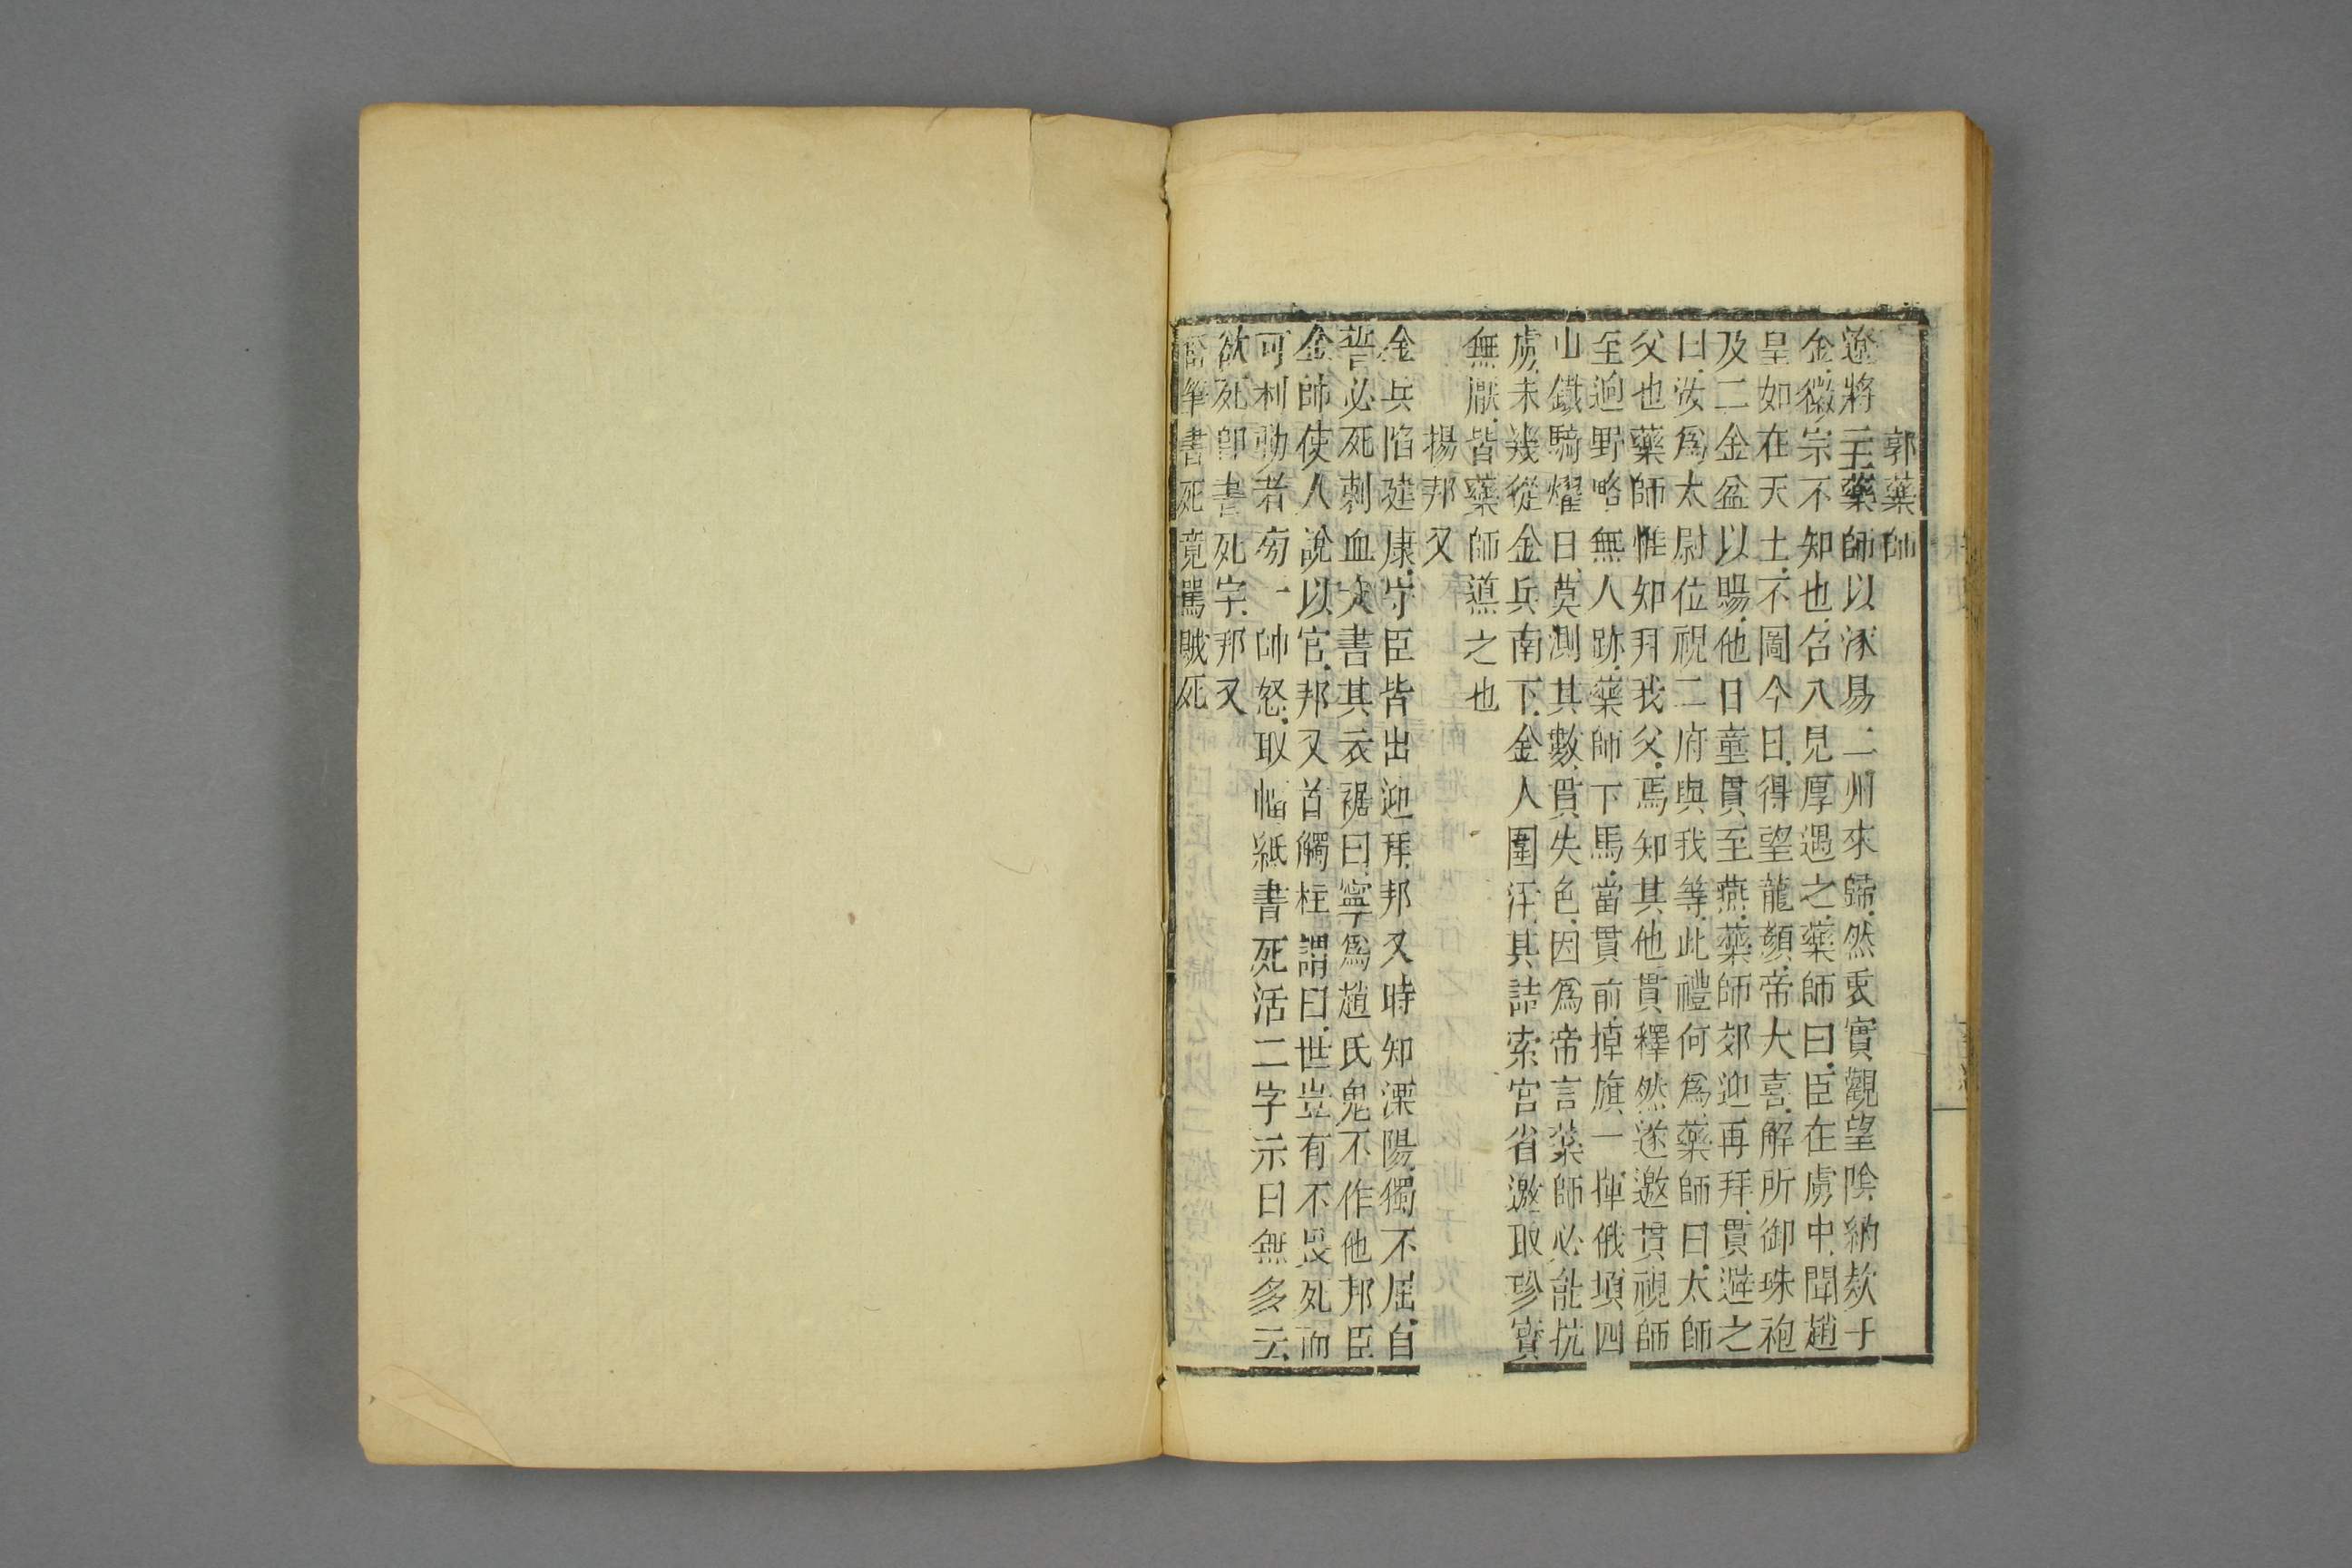 郭藥師
遼將王藥師以涿易二州來歸然實觀望陰納欵于
金徽宗不知也召入見厚遇之藥師曰臣在虜中聞趙
皇如在天上不圖今日得望龍顏帝大喜解所御珠袍
及二金盆以賜他日童貫至燕藥師郊迎再拜貫避之
曰汝爲太尉位視二府與我等此禮何爲藥師曰太師
父也藥師惟知拜我父焉知其他貫釋然遂邀貫視師
至迥野略無人跡藥師下馬當貫前掉旗一揮俄頃四
山鐵騎燿日莫測其數貫失色因爲帝言藥師必能抗
虜未幾從金兵南下金人圍汴其詰索宮省邀取珍寶
無厭皆藥師導之也
揚邦乂
金兵陷建康守臣皆出迎拜邦乂時知溧陽獨不屈自
誓必死刺血大書其衣裾曰寧爲趙氏鬼不作他邦臣
金帥使人說以官邦乂首觸柱謂曰世豈有不畏死而
可利動者勿一帥怒取幅紙書死活二字示曰無多云
欲死卽書死字邦乂
奮筆書死竟罵賊死